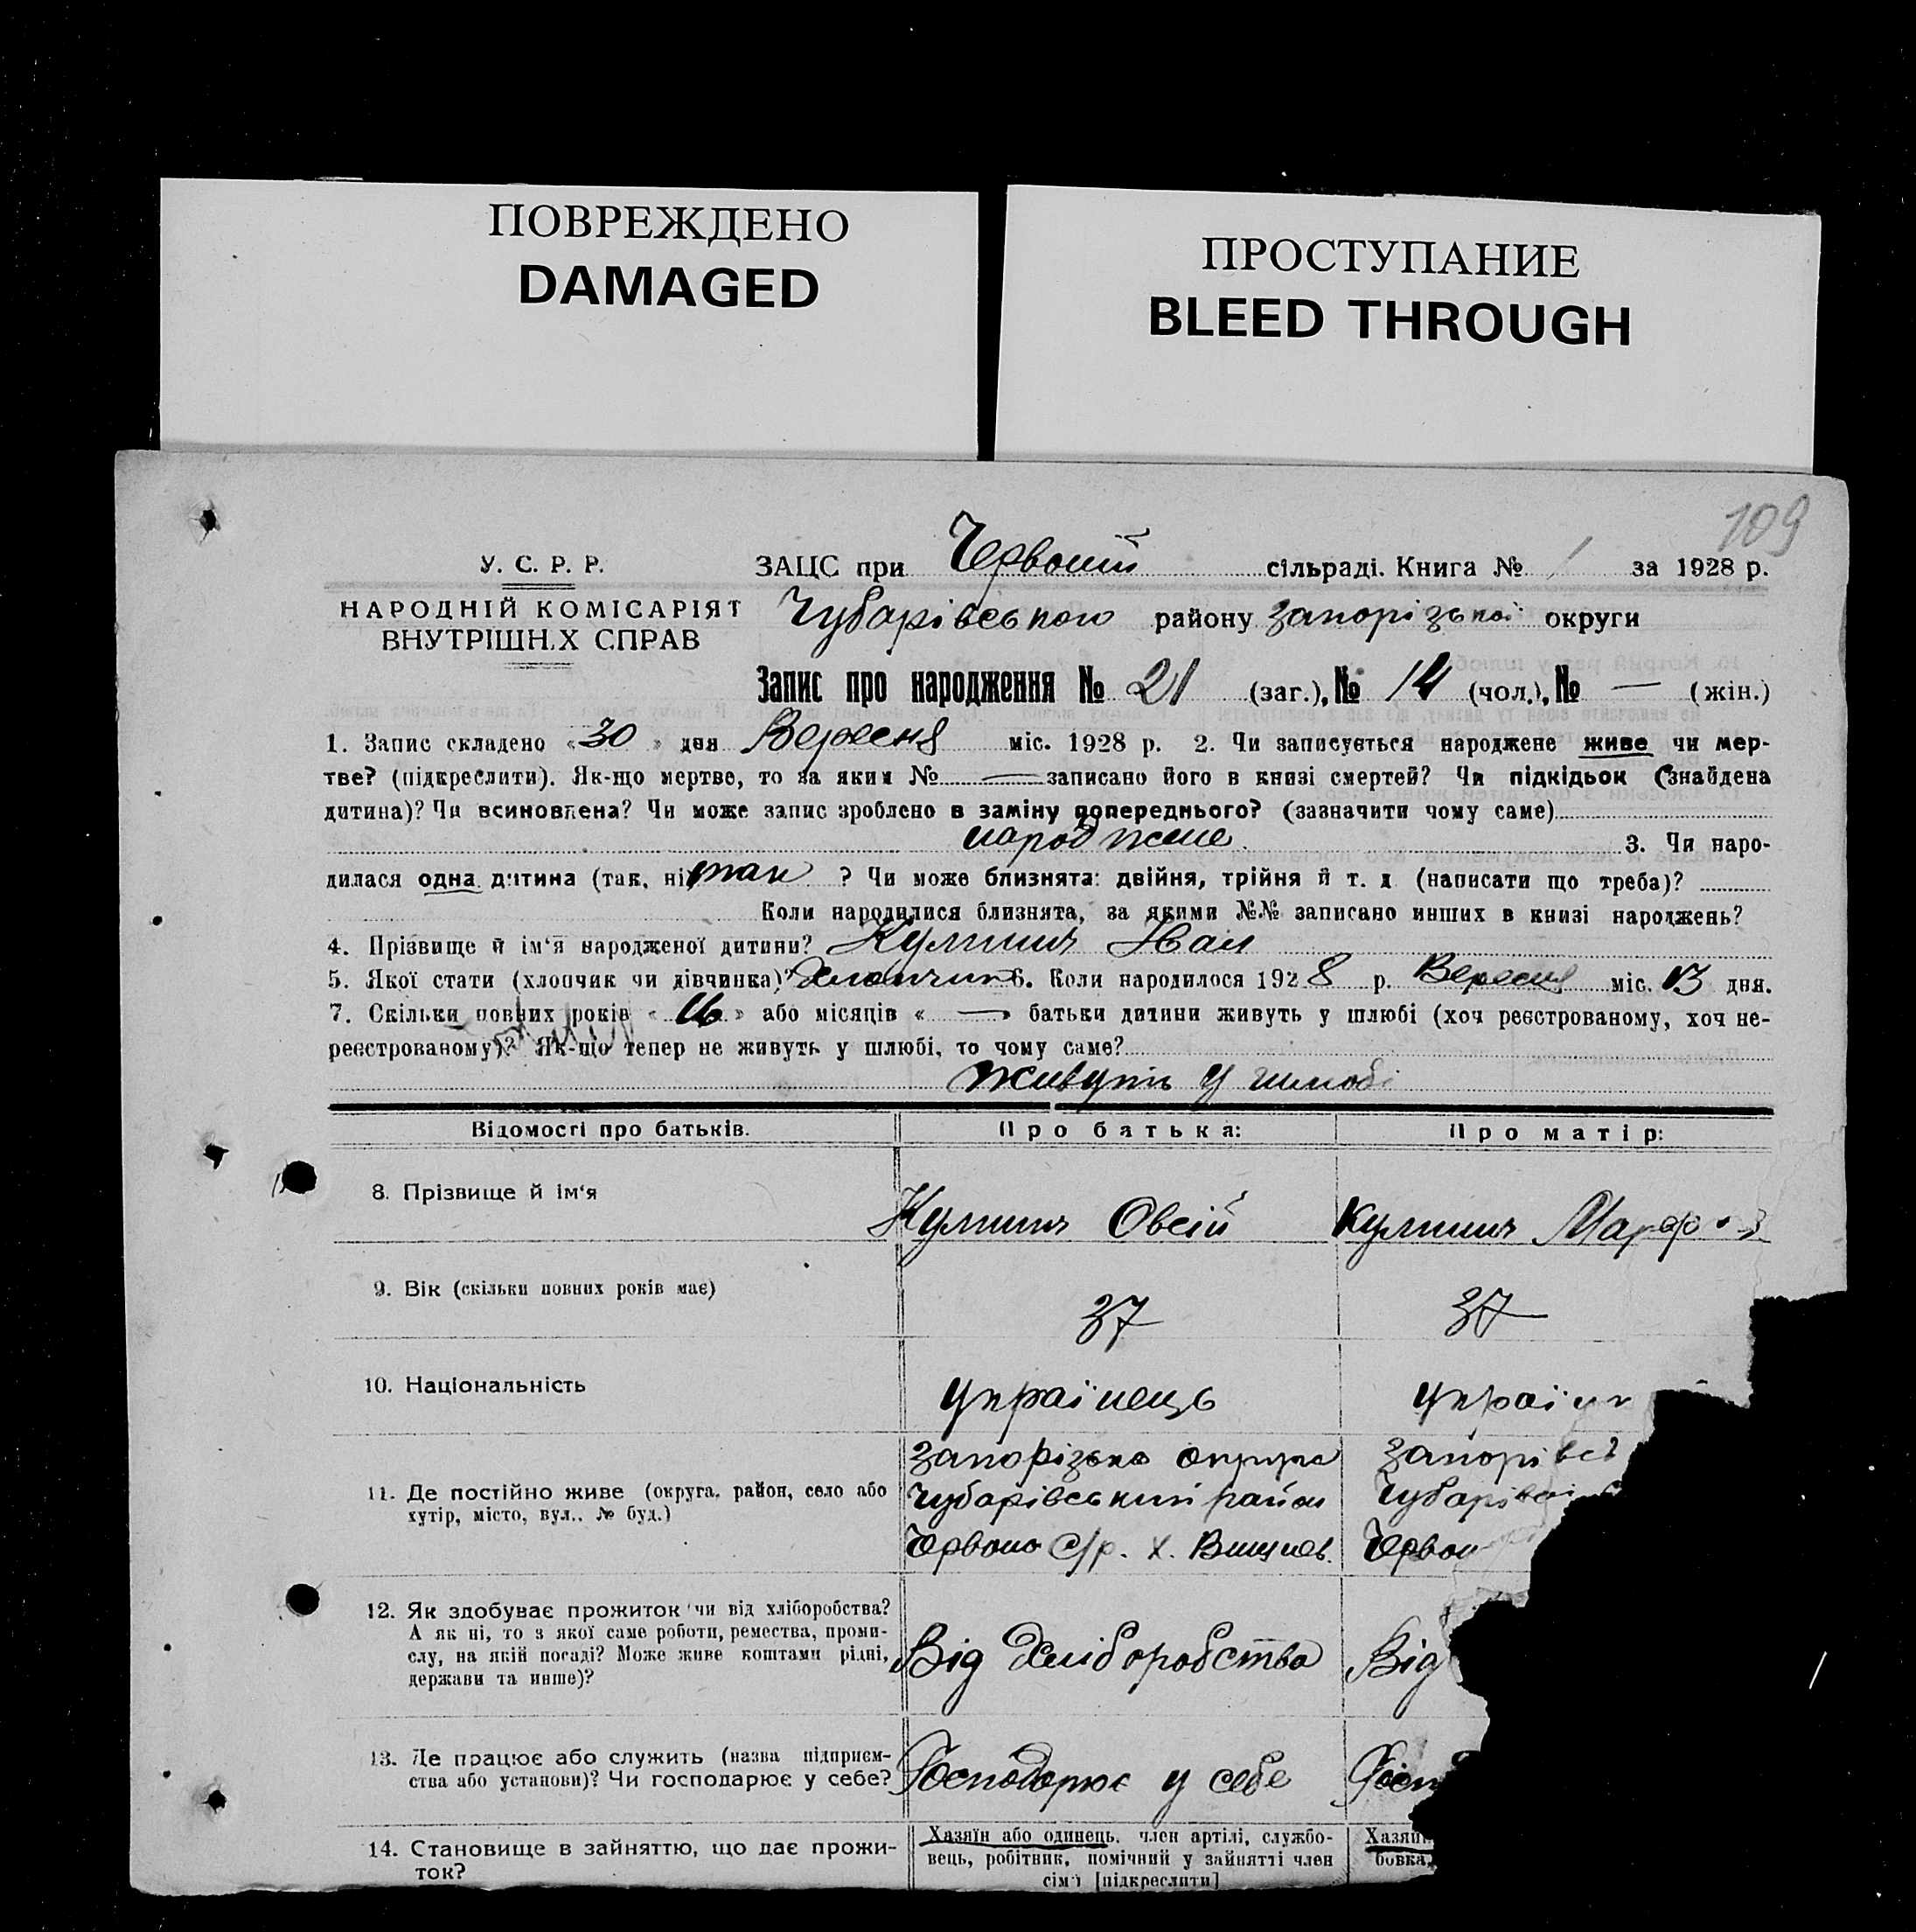 ПОВРЕЖДЕНО
DAMAGED
ПРОСТУПАНИЕ
BLEED THROUGH
109
У. С. Р. Р.
НАРОДНІЙ КОМІСАРІЯТ
ВНУТРІШНІХ СПРАВ
ЗАЦС при Червоній сільраді. Книга № 1 за 1928 р.
Чубарівського району Запорізької округи
Запис про народження № 21 (заг.), № 14 (чол.), № — (жін.)
1. Запис складено «30» дня Вересня міс. 1928 р. 2. Чи записується народжене живе чи мер-
тве? (підкреслити). Як-що мертве, то за яким № — записано його в книзі смертей? Чи підкідьок (знайдена
дитина)? Чи всиновлена? Чи може запис зроблено в заміну попереднього? (зазначити чому саме)
народжене 3. Чи наро-
дилася одна дитина (так, ні) так ? Чи може близнята: двійня, трійня й т. д (написати що треба)?
Коли народилися близнята, за якими №№ записано инших в книзі народжень?
4. Прізвище й ім'я народженої дитини? Кулинич Іван
5. Якої стати (хлопчик чи дівчинка)? Хлопчик 6. Коли народилося 1928 р. Вересня міс. 13 дня.
7. Скільки повних років «16» або місяців «—» батьки дитини живуть у шлюбі (хоч реєстрованому, хоч не-
реєстрованому)? Як-що тепер не живуть у шлюбі, то чому саме?
Живуть у шлюбі
Відомості про батьків. Про батька: Про матір:
8. Прізвище й ім'я Кулинич Овсій Кулинич
9. Вік (скільки повних років має) 37 37
10. Національність Українець Україн
Запорізька округа Запорівсь
11. Де постійно живе (округа, район, село або Чубарівський район Чубарівсь
хутір, місто, вул., № буд.)
Червона с/р. х. Вишнев. Червон
12. Як здобуває прожиток чи від хліборобства?
А як ні, то з якої саме роботи, ремества, проми-
слу, на якій посаді? Може живе коштами рідні, Від Хліборобства Від
держави та инше)?
13. Де працює або служить (назва підприєм-
ства або установи)? Чи господарює у себе? Господорює у себе Госп
14. Становище в зайняттю, що дає прожи-
ток?
Хазяїн або одинець, член артілі, службо-
вець, робітник, помічний у зайнятті член
сім'ї [підкреслити]
Хазяїн
бовка,